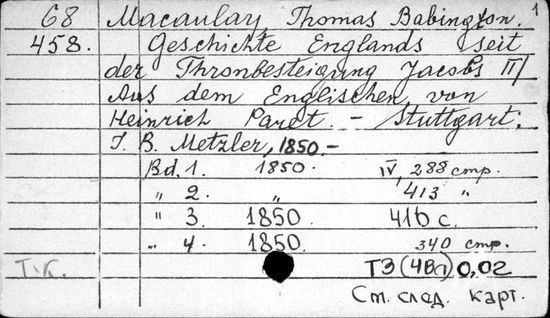 68 Macaulay Thomas Babington. 1
458. Geschichte Englands seit
der Thronbesteigung Jacobs II/
Aus dem Englischen von
Heinrich Paret. — Stuttgart:
J. B. Metzler, 1850.-
Bd. 1. 1850. IV, 288 стр.
„ 2. „ 413 „
„ 3. 1850. 416 с.
„ 4. 1850. 340 стр.
Т.К. ТЭ(4Вл) 0,02
См. след. карт.